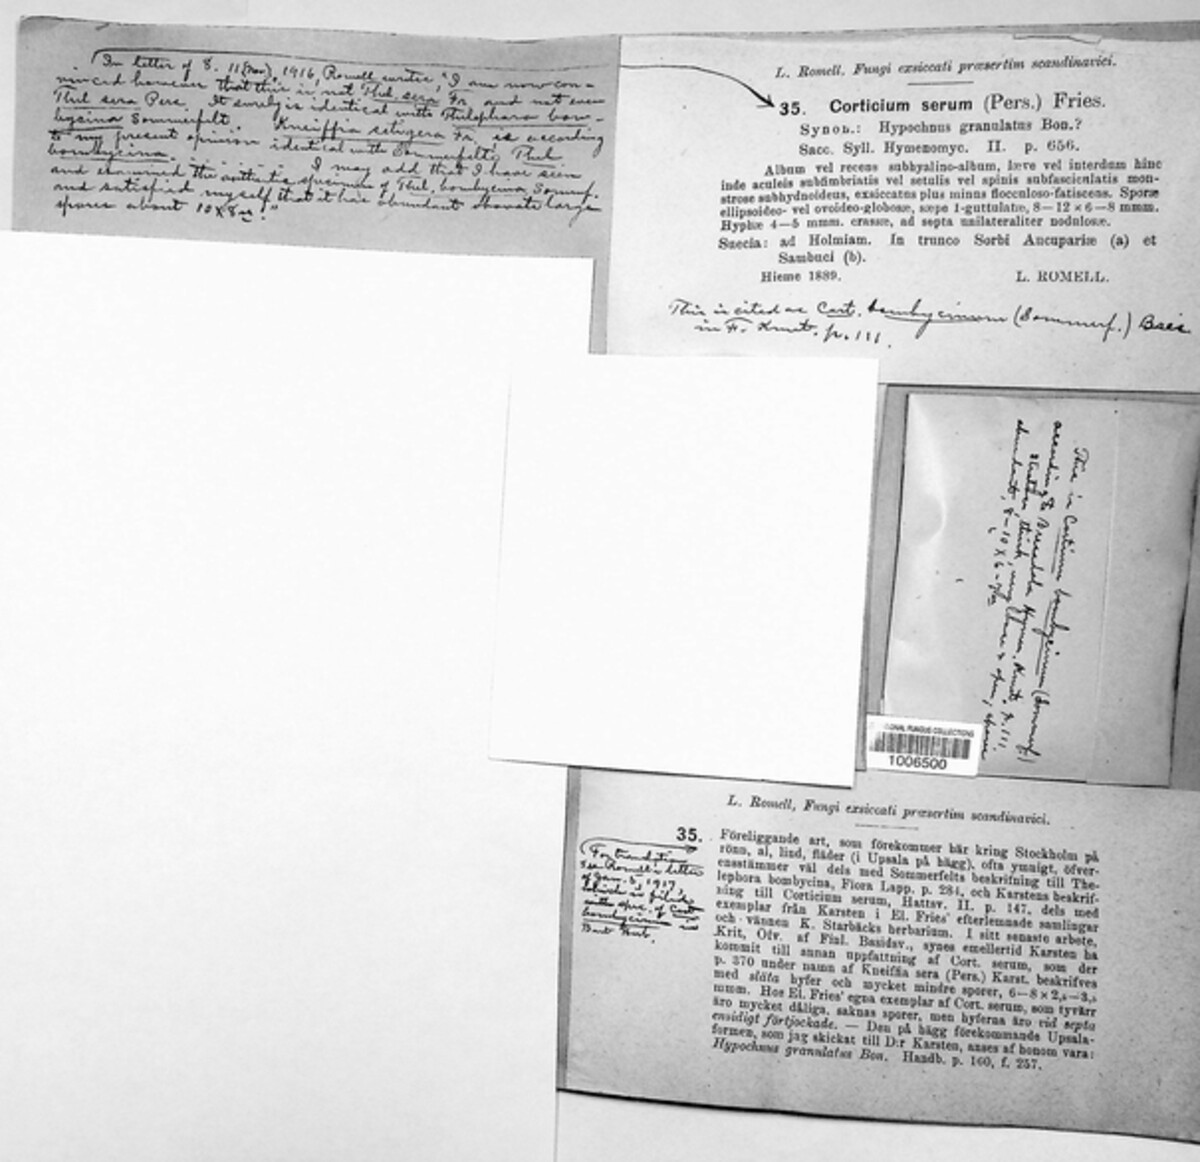 In letter of 8. 11 (Nov), 1916, Romell writes "I am now con-
vinced however that this is not Thel sera Fr. and not even
Thel sera Pers. It surely is identical with Thelephora bom-
bycina Sommerfelt. Kneiffia setigera Fr. is according
to my present opinion identical with Sommerfelts Thel
bombycina. I may add that I have seen
and examined the authentic specimen of Thel. bombycina Sommerf.
and satisfied myself that it has abundant obovate large
spores about 10 x 8 µ."
L. Romell, Fungi exsiccati præsertim scandinavici.
35. Corticium serum (Pers.) Fries.
Synon.: Hypochnus granulatus Bon.?
Sacc. Syll. Hymenomyc. II. p. 656.
Album vel recens subhyalino-album, læve vel interdum hinc
inde aculeis subfimbriatis vel setulis vel spinis subfasciculatis mon-
strose subhydnoideus, exsiccatus plus minus flocculoso-fatiscens. Sporæ
ellipsoideo- vel ovoideo-globosæ, sæpe 1-guttulatæ, 8—12 × 6—8 mmm.
Hyphæ 4—5 mmm. crassæ, ad septa unilateraliter nodulosæ.
Suecia: ad Holmiam. In trunco Sorbi Aucupariæ (a) et
Sambuci (b).
Hieme 1889. L. ROMELL.
This is cited as Cort. bombycinum (Sommerf.) Bres
in F. Kmet. p. 111.
This is Corticium bombycinum (Sommerf.)
according to Bresadola Hymen. Kmet. p. 111
thick, very loose & open, spores
abundant, 8-10 X 6-7µ
NAL FUNGUS COLLECTIONS
1006500
L. Romell, Fungi exsiccati præsertim scandinavici.
35.
For translation
see Romell's letter
of Jan. 5, 1917,
which is filed
with spec. of Cort
bombycinum in
Burt Herb.
Föreliggande art, som förekommer här kring Stockholm på
rönn, al, lind, fläder (i Upsala på hägg), ofta ymnigt, öfver-
ensstämmer väl dels med Sommerfelts beskrifning till The-
lephora bombycina, Flora Lapp. p. 284, och Karstens beskrif-
ning till Corticium serum, Hattsv. II. p. 147, dels med
exemplar från Karsten i El. Fries' efterlemnade samlingar
och vännen K. Starbäcks herbarium. I sitt senaste arbete,
Krit. Öfv. af Finl. Basidsv., synes emellertid Karsten ha
kommit till annan uppfattning af Cort. serum, som der
p. 370 under namn af Kneiffia sera (Pers.) Karst. beskrifves
med släta hyfer och mycket mindre sporer, 6—8 × 2,5—3,5
mmm. Hos El. Fries' egna exemplar af Cort. serum, som tyvärr
äro mycket dåliga, saknas sporer, men hyferna äro vid septa
ensidigt förtjockade. — Den på hägg förekommande Upsala-
formen, som jag skickat till D:r Karsten, anses af honom vara:
Hypochnus granulatus Bon. Handb. p. 160, f. 257.